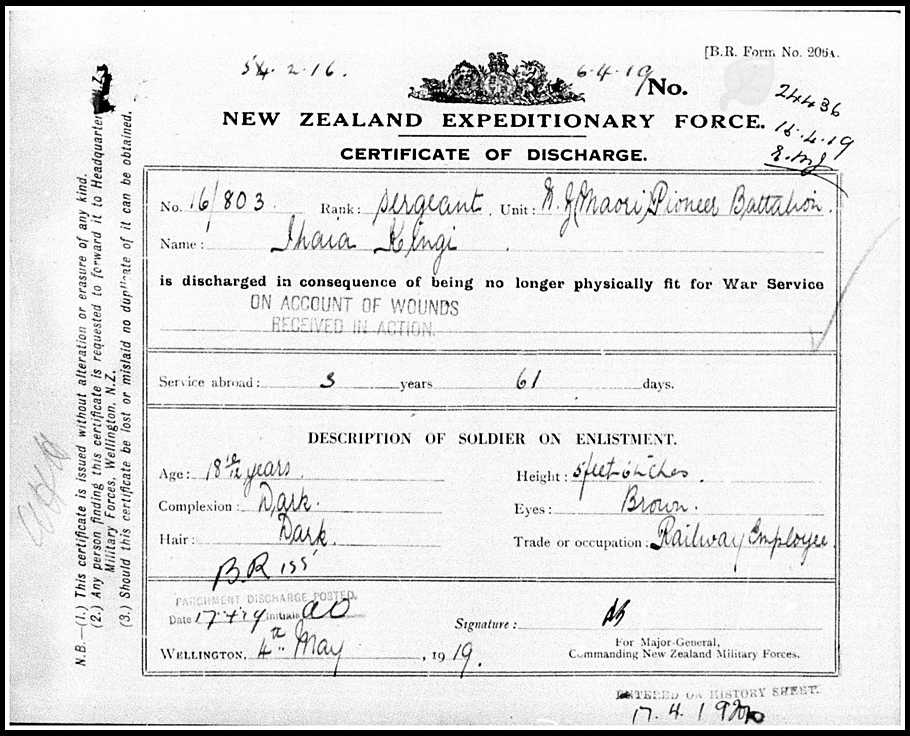 [B.R. Form No. 206A.
5.2.16. 6.4.19 No. 24436
NEW ZEALAND EXPEDITIONARY FORCE. 16.4.19
CERTIFICATE OF DISCHARGE.
No. 16/803 Rank: Sergeant. Unit: N.Z (Maori) Pioneer Battalion.
Name: Ihaia Kingi
is discharged in consequence of being no longer physically fit for War Service
ON ACCOUNT OF WOUNDS
RECEIVED IN ACTION.
Service abroad: 3 years 61 days.
DESCRIPTION OF SOLDIER ON ENLISTMENT.
Age: 18 years. Height: 5 feet 6 inches
Complexion: Dark. Eyes: Brown.
Hair: Dark. Trade or occupation: Railway Employee.
B.R 155
PARCHMENT DISCHARGE POSTED.
Date 17.4.19 initials AO Signature:
WELLINGTON, 4th May, 1919. For Major-General,
Commanding New Zealand Military Forces.
ENTERED ON HISTORY SHEET.
17.4.19
N.B.—(1.) This certificate is issued without alteration or erasure of any kind.
(2.) Any person finding this certificate is requested to forward it to Headquarters, N.Z.
Military Forces, Wellington, N.Z.
(3.) Should this certificate be lost or mislaid no duplicate of it can be obtained.